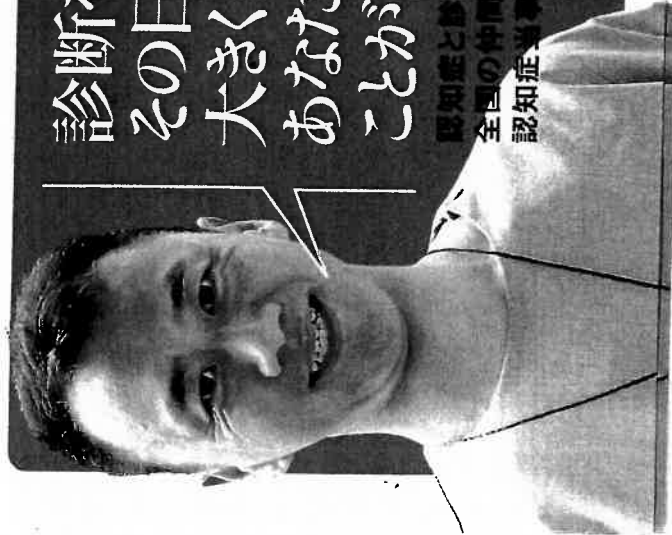 診断
その日
大きく
あなた
ことが
認知症と診
全国の仲間
認知症当事